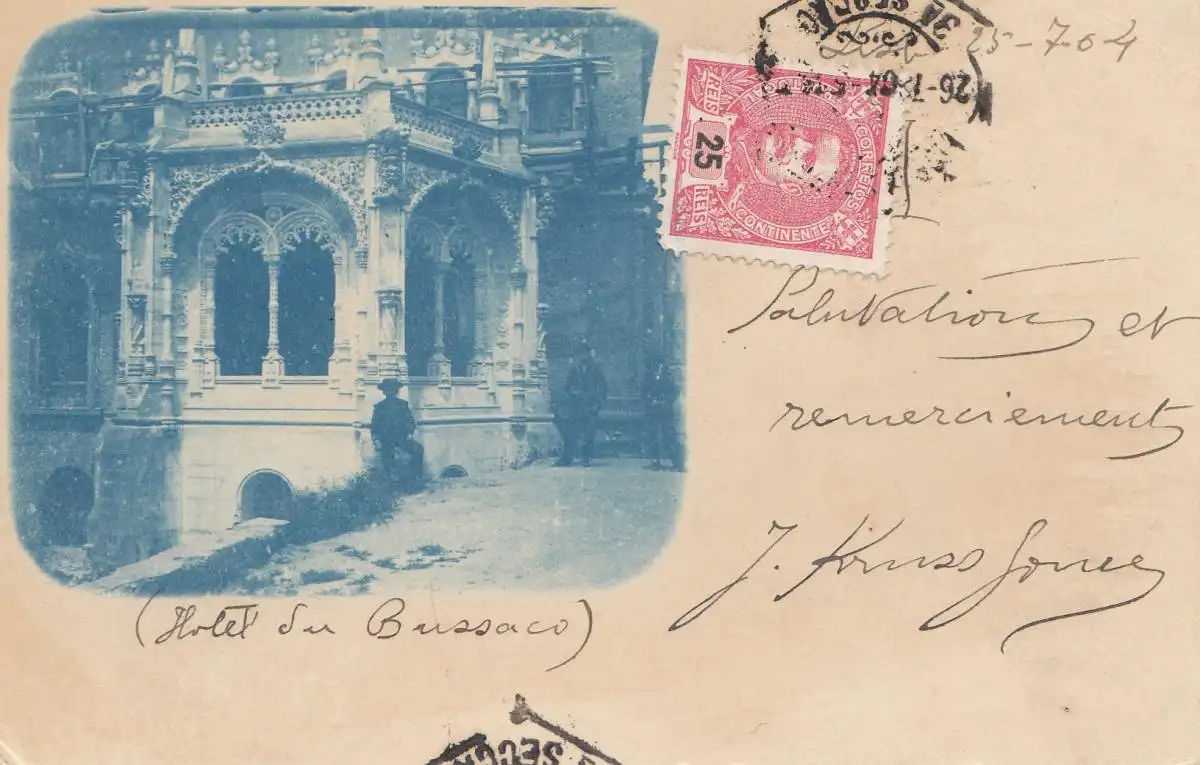 25-7-04
3A SECÇÃO
26-7-04
25
REIS
CORREIOS
CONTINENTE
25
REIS
Salutations et
remerciements
(Hotel du Bussaco)
SECÇ